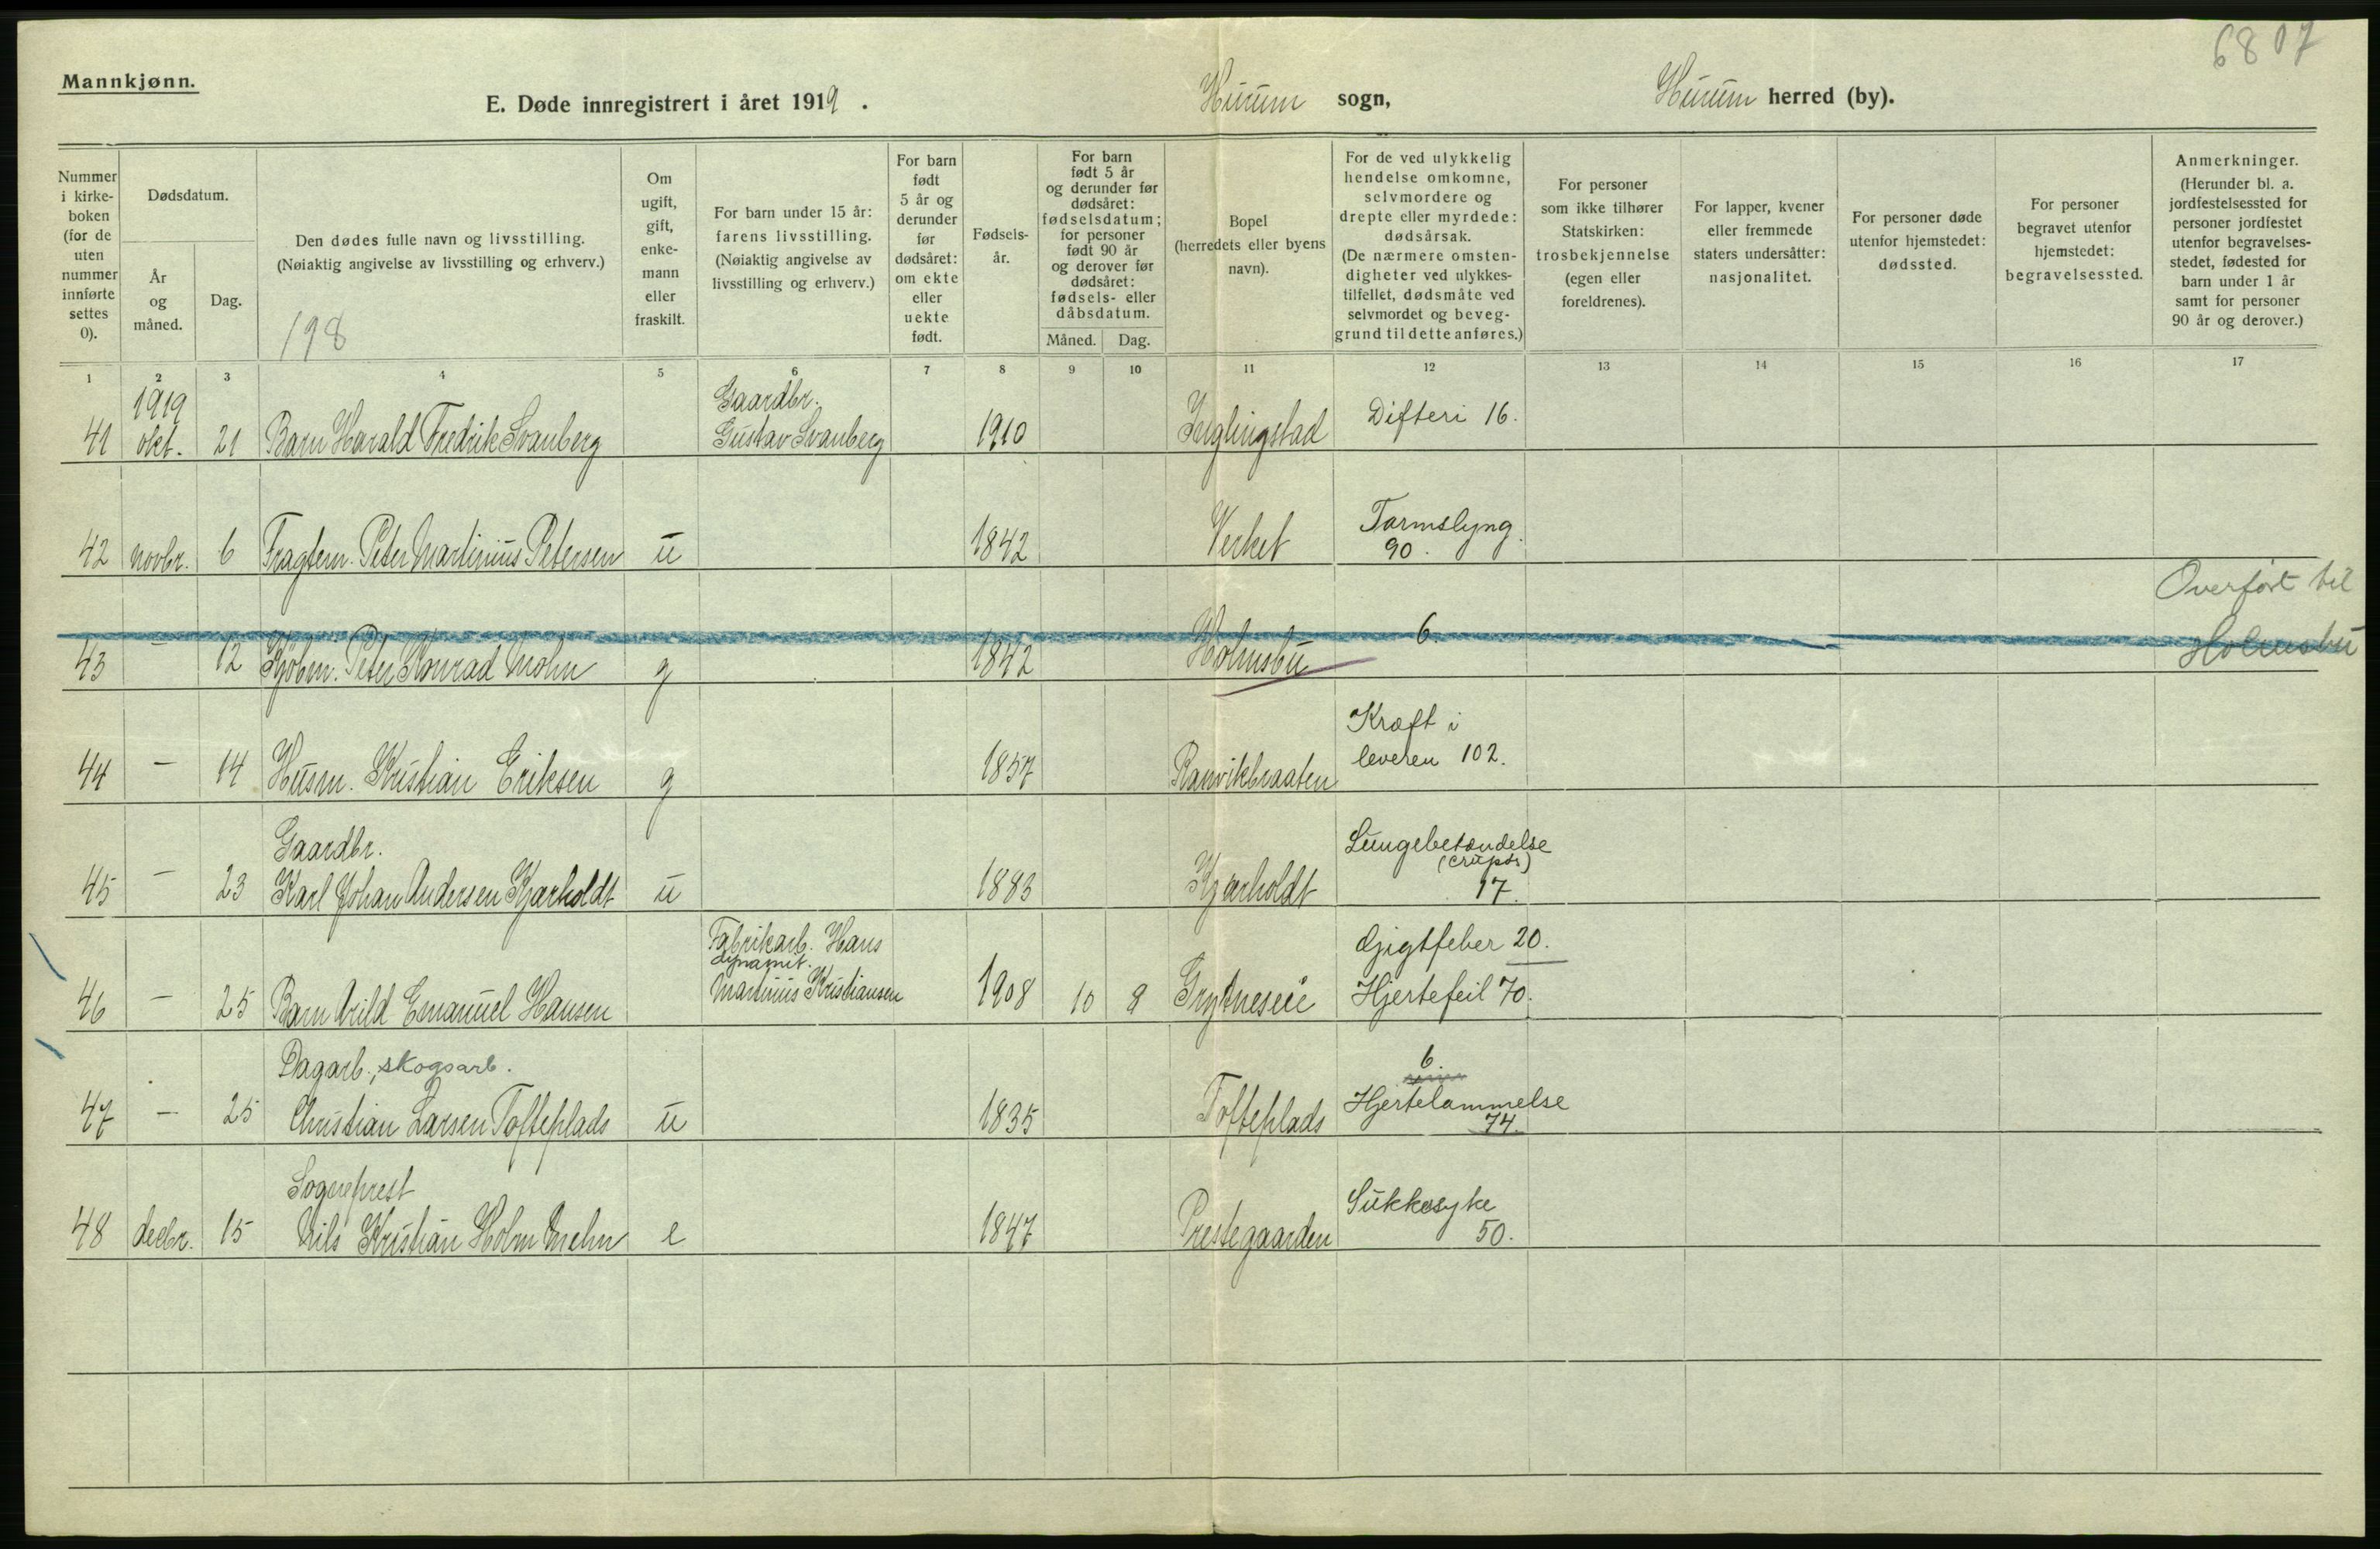 6807
Mannkjønn.
E. Døde innregistrert i året 1919. Hurum sogn, Hurum herred (by).
Nummer i kirke-boken (for de uten nummer innførte settes 0).
Dødsdatum.
År og måned.
Dag.
Den dødes fulle navn og livsstilling. (Nøiaktig angivelse av livsstilling og erhverv.)
198
Om ugift, gift, enke-mann eller fraskilt.
For barn under 15 år: farens livsstilling. (Nøiaktig angivelse av livsstilling og erhverv.)
For barn født 5 år og derunder før dødsåret: om ekte eller uekte født.
Fødsels-år.
For barn født 5 år og derunder før dødsåret: fødselsdatum; for personer født 90 år og derover før dødsåret: fødsels- eller dåbsdatum.
Måned. Dag.
Bopel (herredets eller byens navn).
For de ved ulykkelig hendelse omkomne, selvmordere og drepte eller myrdede: dødsårsak. (De nærmere omsten-digheter ved ulykkes-tilfellet, dødsmåte ved selvmordet og beveg-grund til dette anføres.)
For personer som ikke tilhører Statskirken: trosbekjennelse (egen eller foreldrenes).
For lapper, kvener eller fremmede staters undersåtter: nasjonalitet.
For personer døde utenfor hjemstedet: dødssted.
For personer begravet utenfor hjemstedet: begravelsessted.
Anmerkninger. (Herunder bl. a. jordfestelsessted for personer jordfestet utenfor begravelses-stedet, fødested for barn under 1 år samt for personer 90 år og derover.)
1 2 3 4 5 6 7 8 9 10 11 12 13 14 15 16 17
1919 Gaardbr.
41 okt. 21 Barn Harald Fredrik Svanberg Gustav Svanberg 1910 Inglingstad Difteri 16.
42 novbr. 6 Fragtem. Peter Martinius Petersen u 1842 Verket Tarmslyng. 90.
Overført til
43 - 12 Kjøbm. Peter Konrad Mohn g 1842 Holmsbu 6. Holmsbu
44 - 14 Husm. Kristian Eriksen g 1857 Ramvikbraaten Kræft i leveren 102.
Gaardbr.
45 - 23 Karl Johan Andersen Kjærholdt u 1883 Kjærholdt Lungebetændelse (crupøs) 17.
Fabrikarb. Hans
dynamit.
46 - 25 Barn Arild Emanuel Hansen Martinius Kristiansen 1908 10 8 Grytneseie Gjigtfeber 20. Hjertefeil 70.
Dagarb., skogsarb.
47 - 25 Christian Larsen Tofteplads u 1835 Tofteplads 6 Hjertelammelse 74.
Sogneprest
48 decbr. 15 Nils Kristian Holm Mehn e 1847 Prestegaarden Sukkesyke 50.